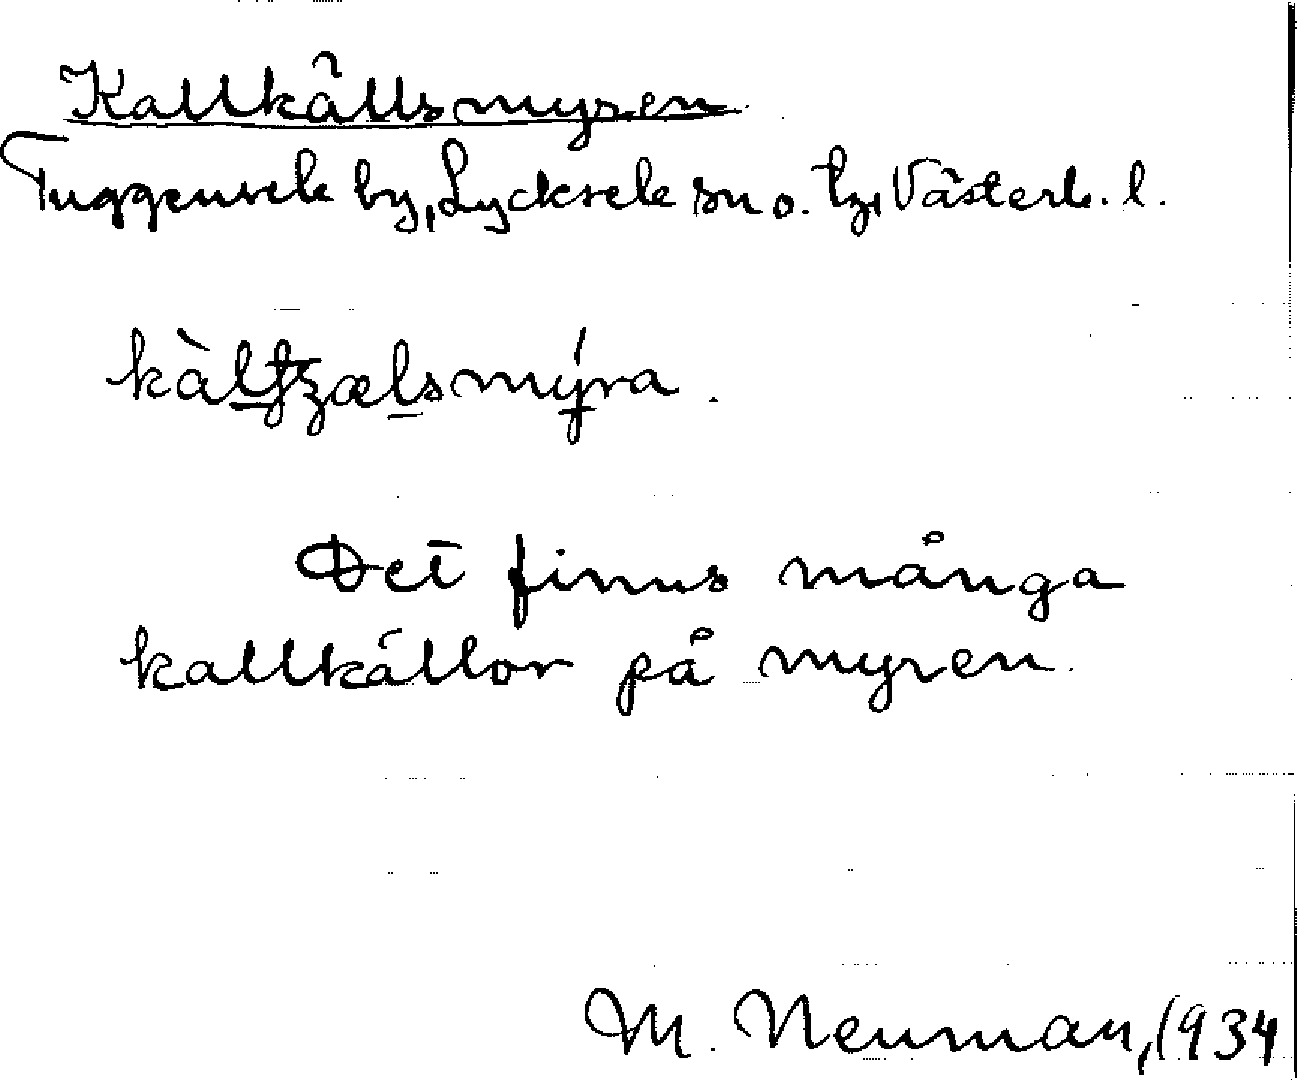 Kallkällsmyren
Tuggensele by, Lycksele sn o. tg, Västerb. l.
kàlʈʂælsmýra.
Det finns många
kallkällor på myren.
M. Neuman, 1934